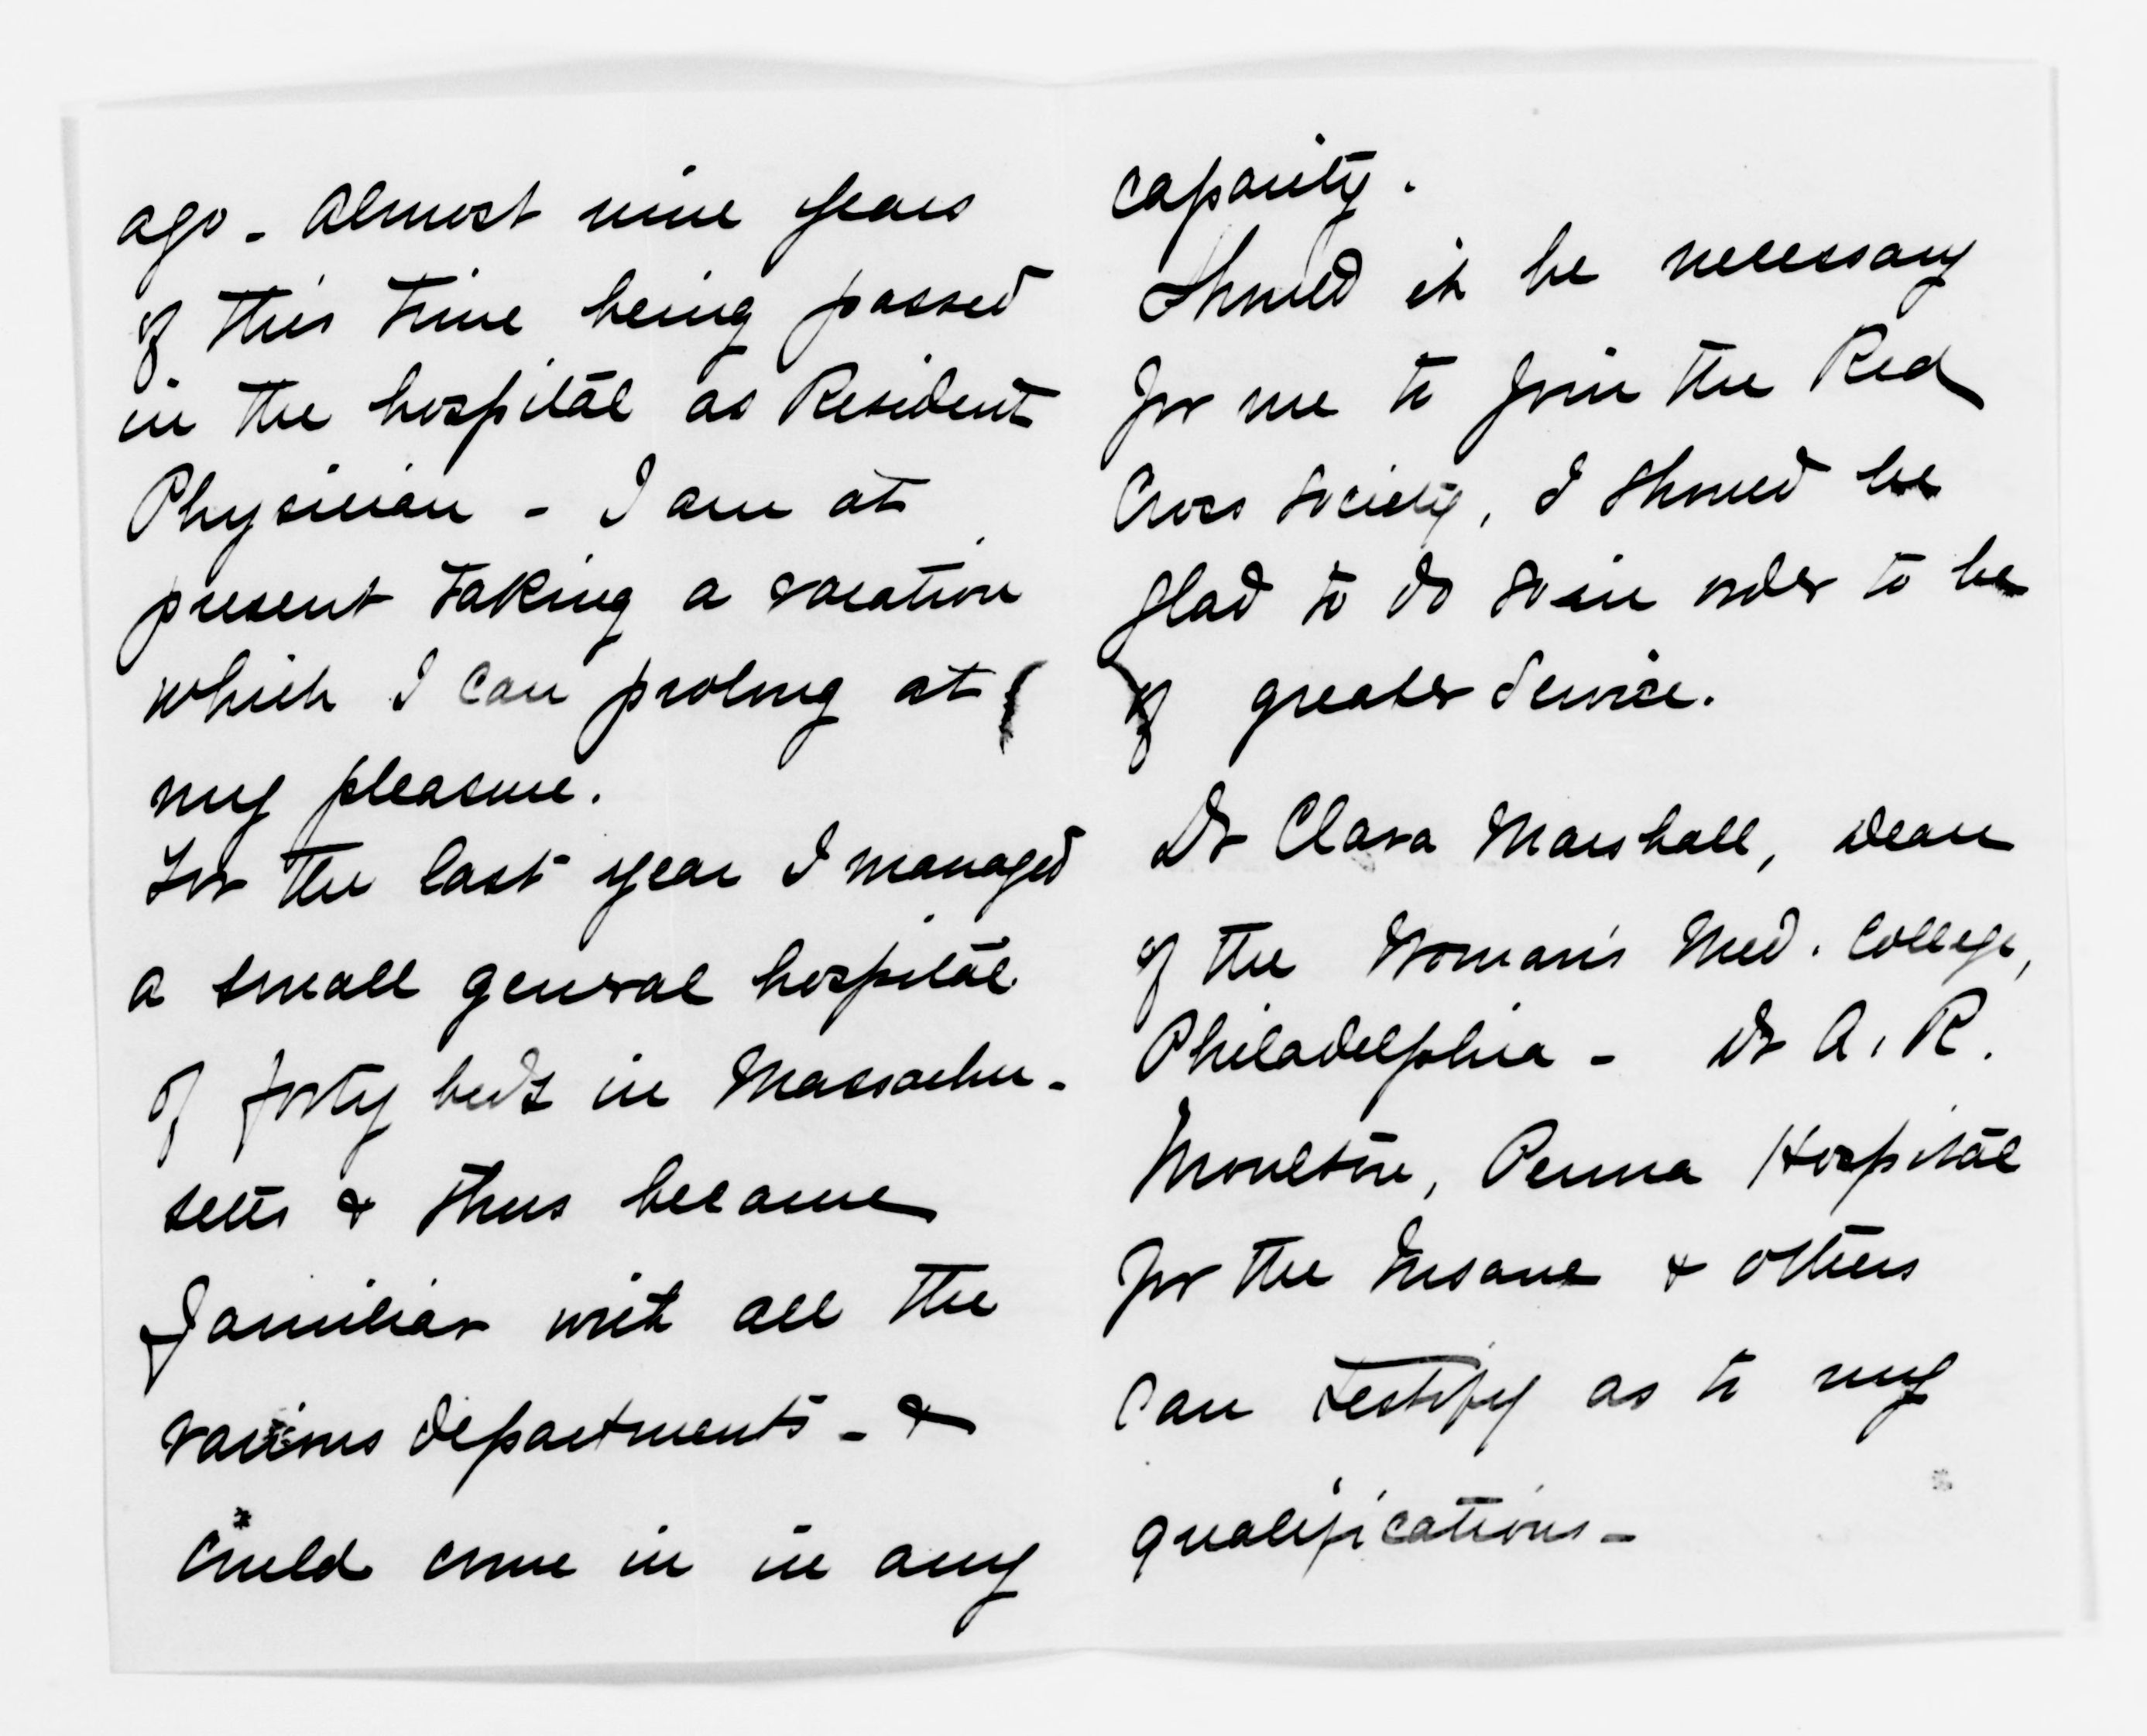 ago - Almost nine years
of this time being passed
in the hospital as Resident
Physician - I am at
present taking a vacation
which I can prolong at
my pleasure.
For the last year I managed
a small general hospital
of forty beds in Massachu-
setts & thus became
familiar with all the
various departments - &
could come in in any
capacity.
Should it be necessary
for me to join the Red
Cross Society, I should be
glad to do so in order to be
of greater service.
Dr Clara Marshall, Dean
of the Woman's Med. College,
Philadelphia - Dr A. R.
Moulton, Penna Hospital
for the Insane & others
can testify as to my
qualifications -